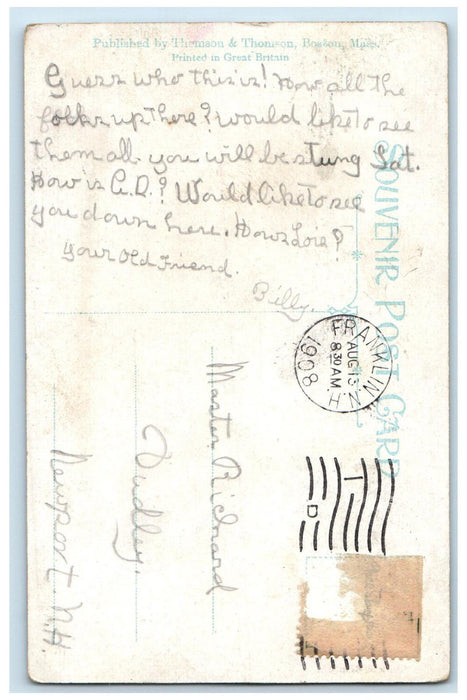 Published by Thomson & Thomson, Boston, Mass.
Printed in Great Britain
Guess who this is! How all the
folks up there? would like to see
them all you will be stung Sat.
How is C.D.? Would like to see
you down here. Hows Lois?
Your Old Friend.
Billy
SOUVENIR POST CARD
FRANKLIN, N.H.
AUG 13
8 30 AM
1908
Master Richard
Dudley.
Newport N.H.
D